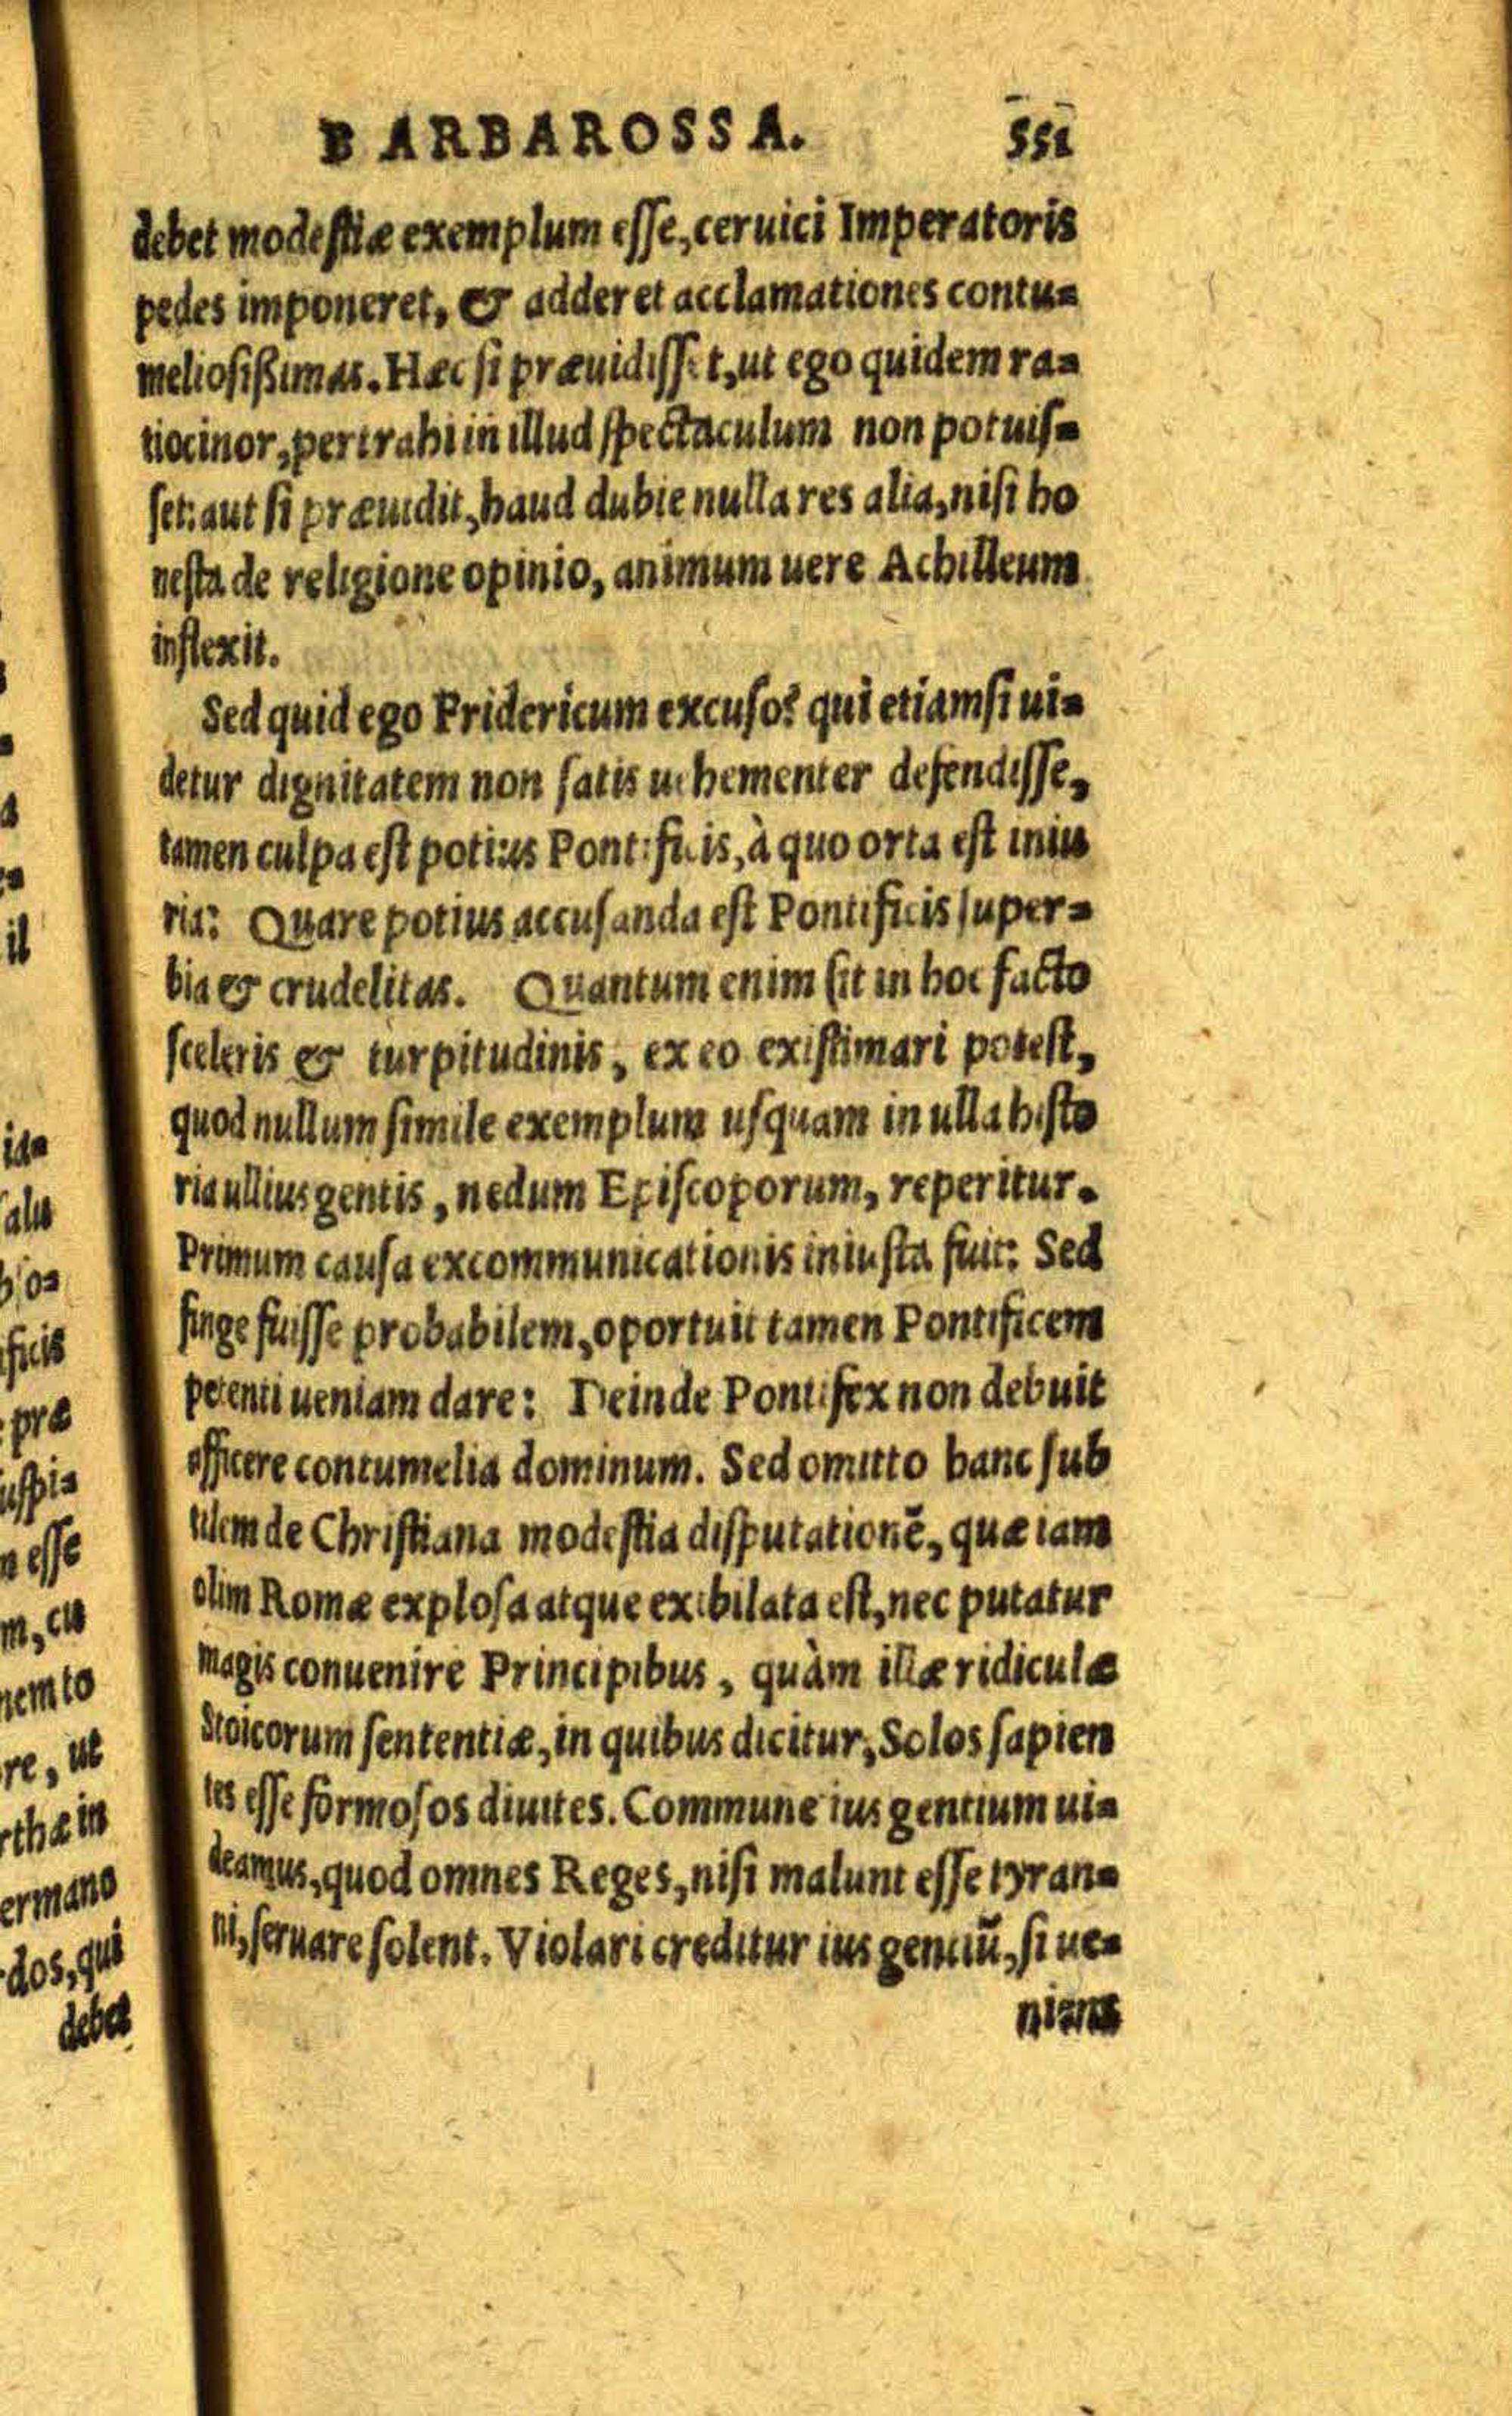 BARBAROSSA. 551
debet modestiæ exemplum esse, ceruici Imperatoris
pedes imponeret, & adderet acclamationes contu-
meliosißimas. Hæc si præuidisset, ut ego quidem ra-
tiocinor, pertrahi in illud spectaculum non potuis-
set: aut si præuidit, haud dubie nulla res alia, nisi ho
nesta de religione opinio, animum uere Achilleum
inflexit.
Sed quid ego Fridericum excuso? qui etiamsi ui-
detur dignitatem non satis uehementer defendisse,
tamen culpa est potius Pontificis, à quo orta est iniu
ria: Quare potius accusanda est Pontificis super-
bia & crudelitas. Quantum enim sit in hoc facto
sceleris & turpitudinis, ex eo existimari potest,
quod nullum simile exemplum usquam in ulla histo
ria ullius gentis, nedum Episcoporum, reperitur.
Primum causa excommunicationis iniusta fuit: Sed
finge fuisse probabilem, oportuit tamen Pontificem
petenti ueniam dare: Deinde Pontifex non debuit
afficere contumelia dominum. Sed omitto hanc sub
tilem de Christiana modestia disputationē, quæ iam
olim Romæ explosa atque exibilata est, nec putatur
magis conuenire Principibus, quàm illæ ridiculæ
Stoicorum sententiæ, in quibus dicitur, Solos sapien
tes esse formosos diuites. Commune ius gentium ui-
deamus, quod omnes Reges, nisi malunt esse tyran-
ni, seruare solent. Violari creditur ius gentiū, si ue-
niam
il
id-
alu
bio-
ficis
præ
uspi-
n esse
m, cu
nem to
re, ut
rthæ in
ermano
dos, qui
debet